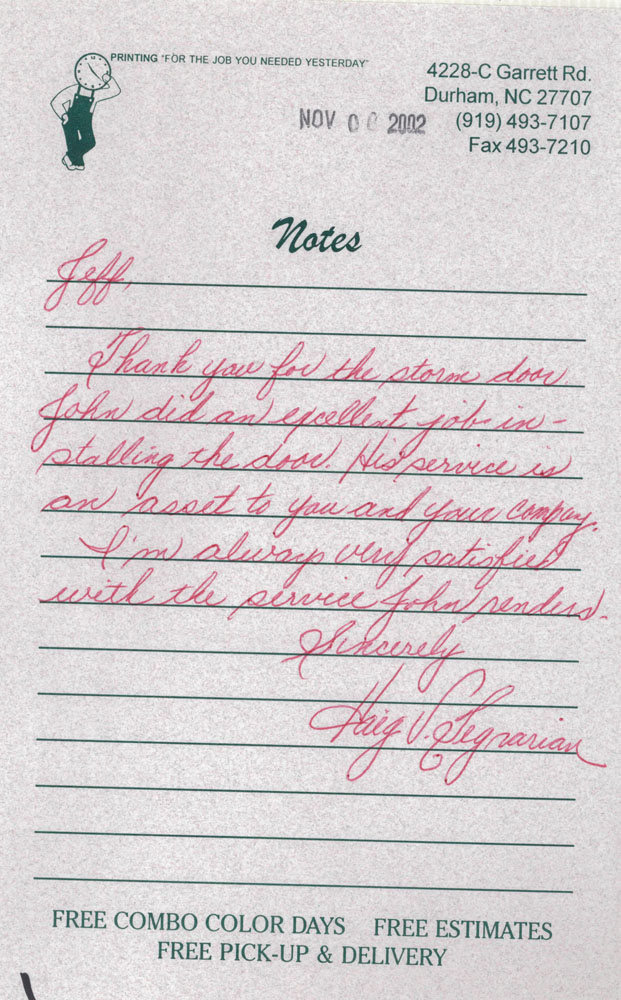 PRINTING "FOR THE JOB YOU NEEDED YESTERDAY"
4228-C Garrett Rd.
Durham, NC 27707
(919) 493-7107
Fax 493-7210
NOV 0 6 2002
Notes
Jeff,
Thank you for the storm door.
John did an excellent job in-
stalling the door. His service is
an asset to you and your company.
I'm always very satisfied
with the service John renders.
Sincerely
Haig V.
FREE COMBO COLOR DAYS FREE ESTIMATES
FREE PICK-UP & DELIVERY